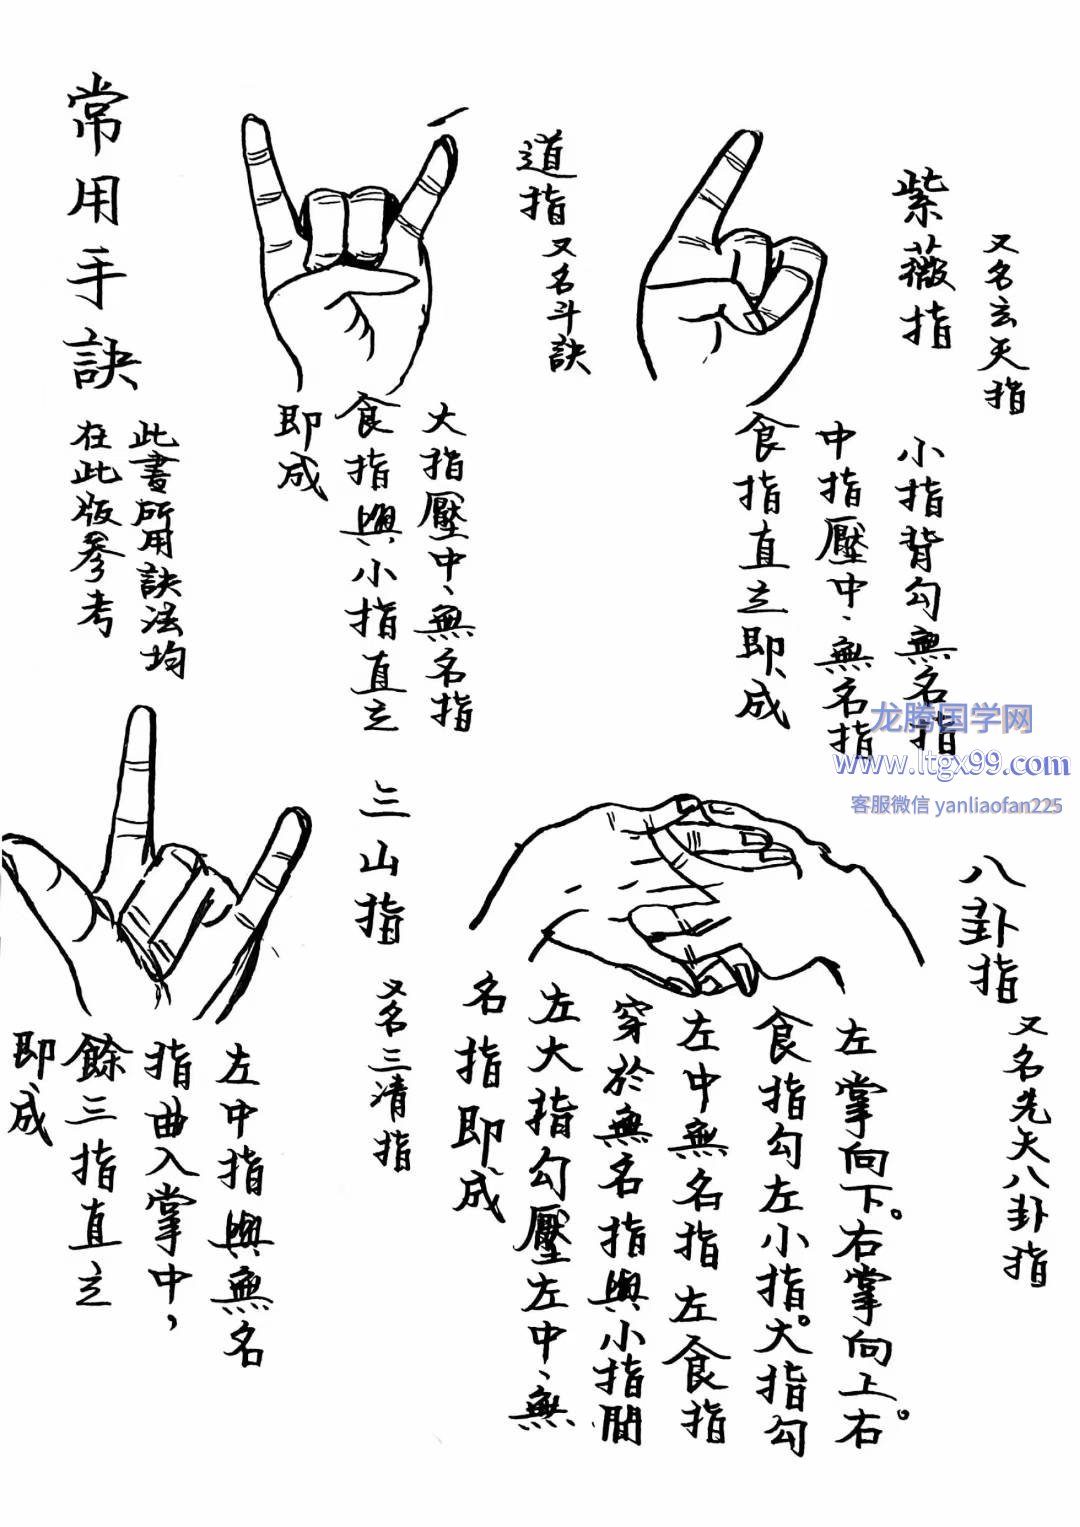 常用手訣
此書所用訣法均
在此版參考
紫薇指
又名玄天指
小指背勾無名指
中指壓中、無名指
食指直立即成
道指
又名斗訣
大指壓中、無名指
食指與小指直立
即成
龙腾国学网
www.ltgx99.com
客服微信 yanliaofan225
八卦指
又名先天八卦指
左掌向下。右掌向上。右
食指勾左小指。大指勾
左中無名指左食指
穿於無名指與小指間
左大指勾壓左中、無
名指即成
三山指
又名三清指
左中指與無名
指曲入掌中，
餘三指直立
即成